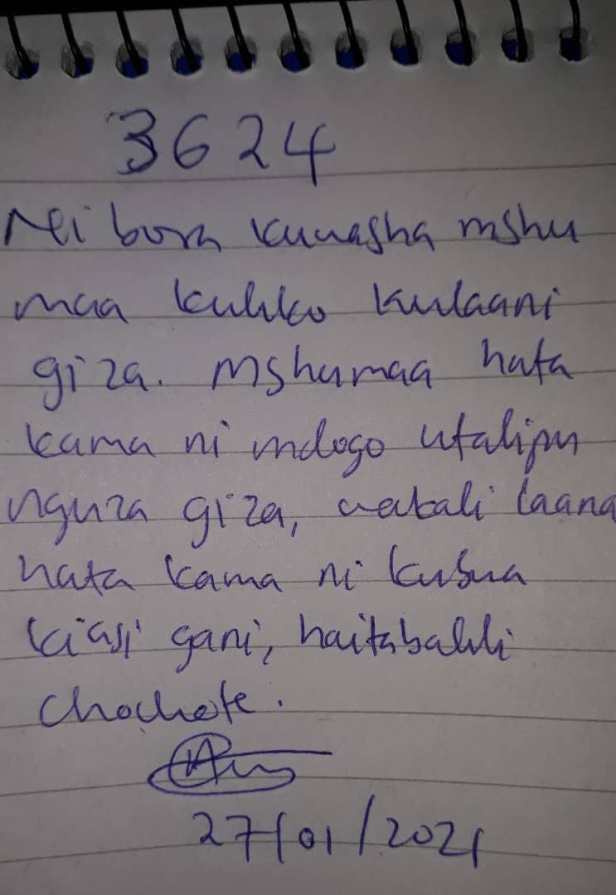 3624
Ni bora kuwasha mshu
maa kuliko kulaani
giza. Mshumaa hata
kama ni mdogo utalipu
nguza giza, wakati laana
hata kama ni kubwa
kiasi gani, haitabadili
chochote.
27/01/2021